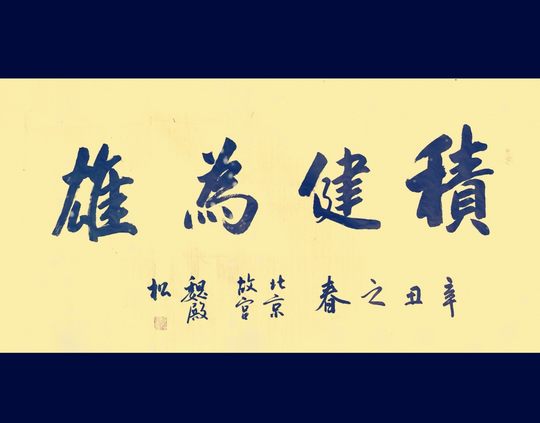 積健為雄
辛丑之春
北京
故宮
魏殿
松